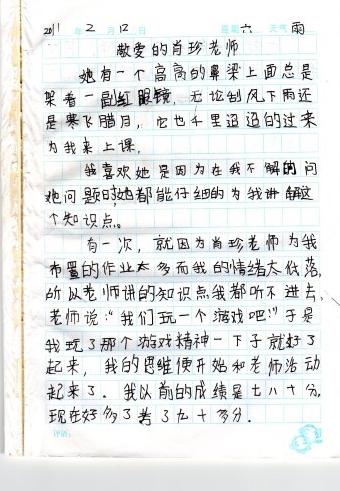 2011 年 2 月 12 日 星期 六 天气 雨
敬爱的肖珍老师
她有一个高高的鼻梁上面总是
架着一副红眼镜，无论刮风下雨还
是寒飞腊月，它也千里迢迢的过来
为我来上课。
我喜欢她是因为在我不解的问
她问题时她都能仔细的为我讲解这
个知识点。
有一次，就因为肖珍老师为我
布置的作业太多而我的情绪太低落，
所以老师讲的知识点我都听不进去，
老师说：“我们玩一个游戏吧！”于是
我玩了那个游戏精神一下子就好了
起来，我的思维便开始和老师活动
起来了。我以前的成绩是七八十分，
现在好多了考了九十多分．
评语：